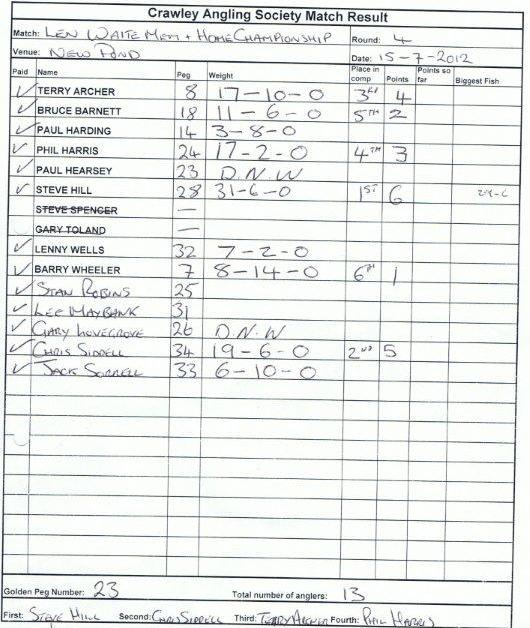 Crawley Angling Society Match Result
Match: LEN WAITE MEM + HOME CHAMPIONSHIP Round: 4
Venue: NEW POND Date: 15-7-2012
Paid Name Peg Weight Place in comp Points Points so far Biggest Fish
✓ TERRY ARCHER 8 17-10-0 3RD 4
✓ BRUCE BARNETT 18 11-6-0 5TH 2
✓ PAUL HARDING 14 3-8-0
✓ PHIL HARRIS 24 17-2-0 4TH 3
✓ PAUL HEARSEY 23 D.N.W
✓ STEVE HILL 28 31-6-0 1ST 6
STEVE SPENCER —
GARY TOLAND —
✓ LENNY WELLS 32 7-2-0
✓ BARRY WHEELER 7 8-14-0 6TH 1
✓ STAN ROBINS 25
✓ LEE MAYBANK 31
✓ GARY LOVEGROVE 26 D.N.W
✓ CHRIS SIDDELL 34 19-6-0 2ND 5
✓ JACK SORRELL 33 6-10-0
Golden Peg Number: 23 Total number of anglers: 13
First: STEVE HILL Second: CHRIS SIDDELL Third: TERRY ARCHER Fourth: PHIL HARRIS